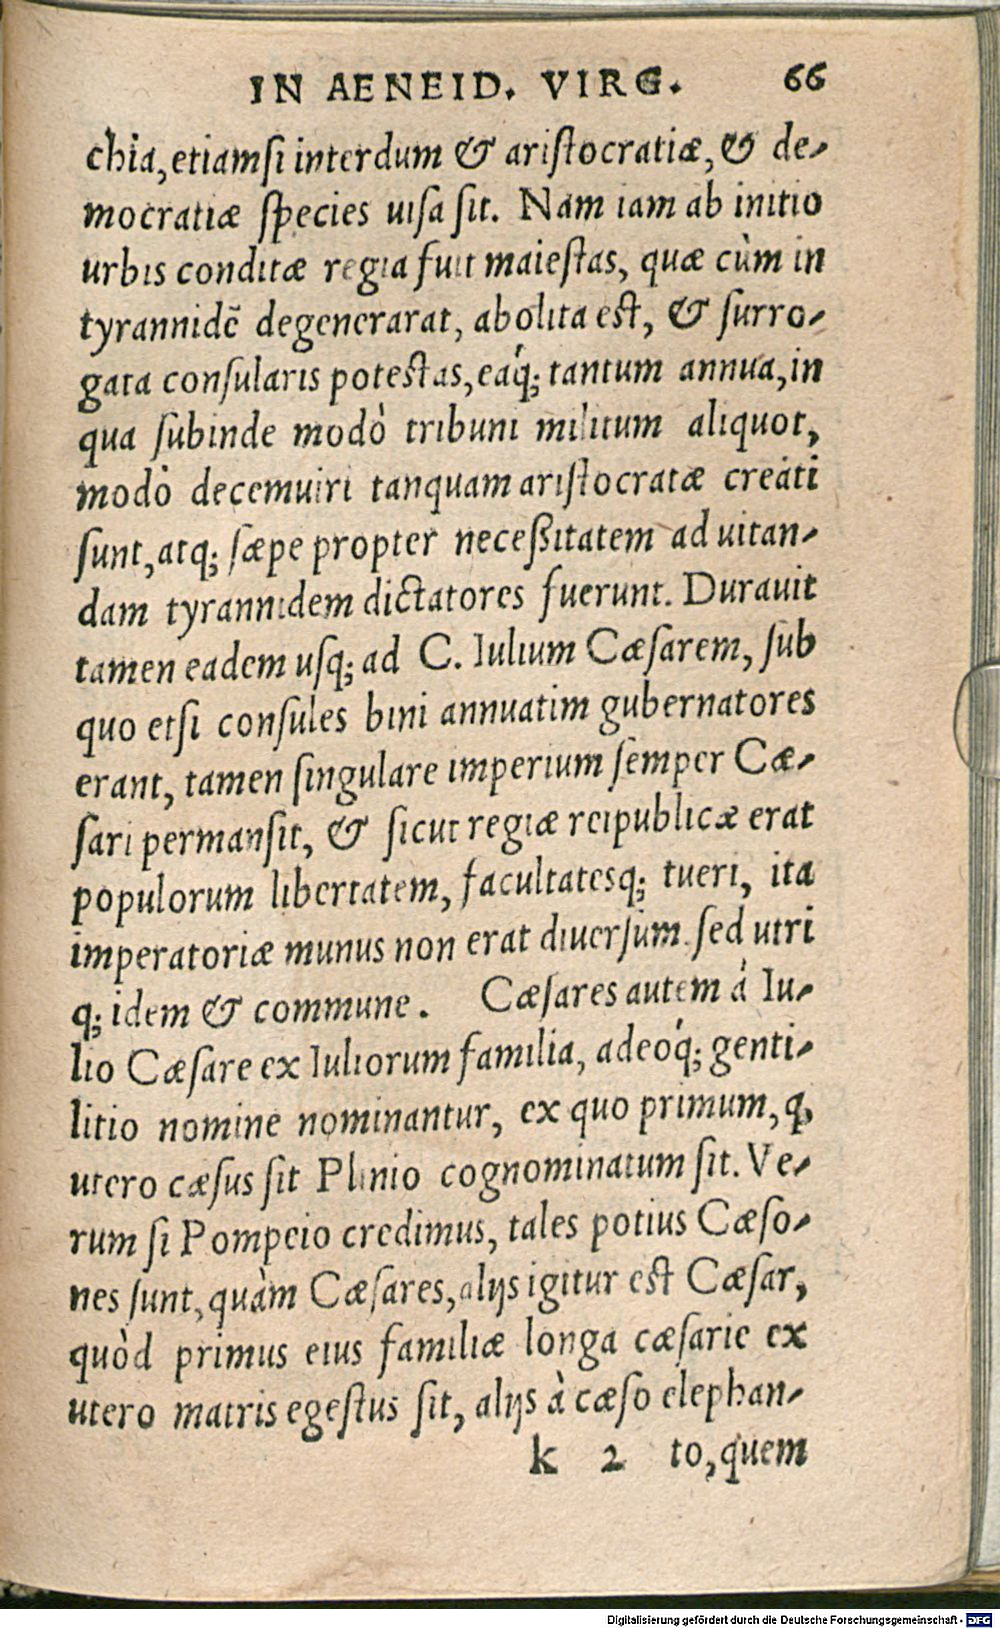 IN AENEID. VIRG. 66
chia, etiamsi interdum & aristocratiæ, & de-
mocratiæ species uisa sit. Nam iam ab initio
urbis conditæ regia fuit maiestas, quæ cùm in
tyrannidē degenerarat, abolita est, & surro-
gata consularis potestas, eaq́; tantum annua, in
qua subinde modò tribuni militum aliquot,
modò decemuiri tanquam aristocratæ creati
sunt, atq; sæpe propter neceßitatem ad uitan-
dam tyrannidem dictatores fuerunt. Durauit
tamen eadem usq; ad C. Iulium Cæsarem, sub
quo etsi consules bini annuatim gubernatores
erant, tamen singulare imperium semper Cæ-
sari permansit, & sicut regiæ reipublicæ erat
populorum libertatem, facultatesq; tueri, ita
imperatoriæ munus non erat diuersum. sed utri
q; idem & commune. Cæsares autem à Iu-
lio Cæsare ex Iuliorum familia, adeoq́; genti-
litio nomine nominantur, ex quo primum, ꝙ
utero cæsus sit Plinio cognominatum sit. Ve-
rum si Pompeio credimus, tales potius Cæso-
nes sunt, quàm Cæsares, alijs igitur est Cæsar,
quòd primus eius familiæ longa cæsarie ex
utero matris egestus sit, alijs à cæso elephan-
k 2 to, quem
Digitalisierung gefördert durch die Deutsche Forschungsgemeinschaft - DFG